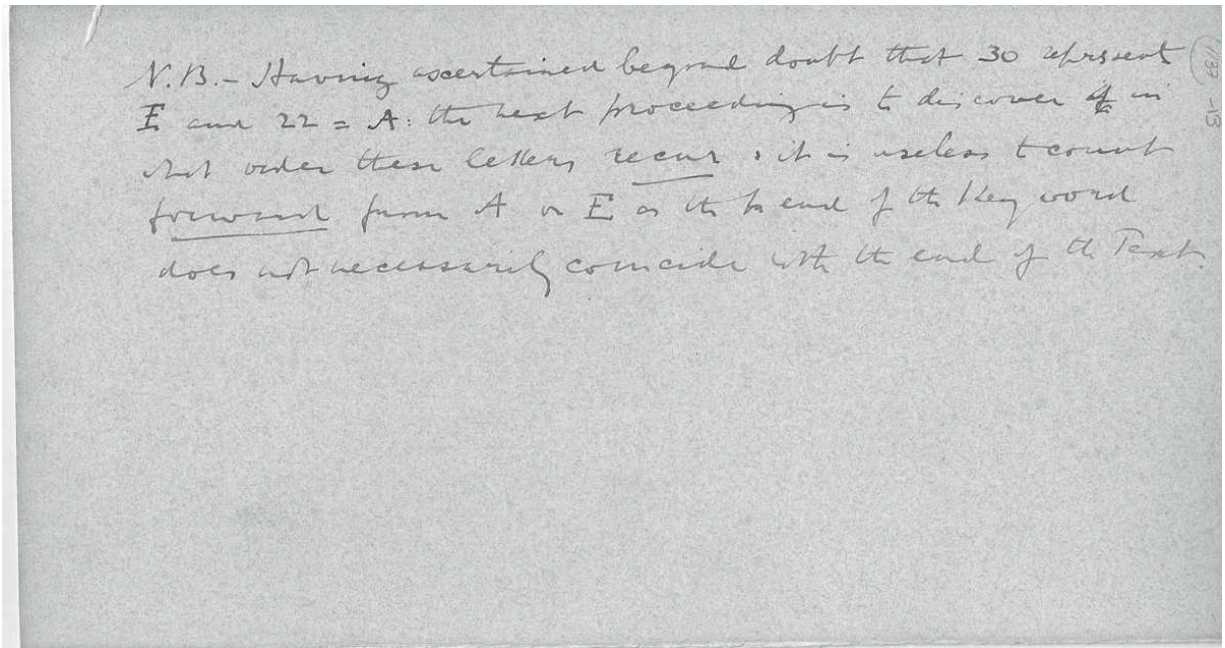 N.B.- Having ascertained beyond doubt that 30 represent
E and 22 = A: the next proceeding is to discover in
what order these letters recur : it is useless to count
forward from A or E as the end of the Key word
does not necessarily coincide with the end of the Text.